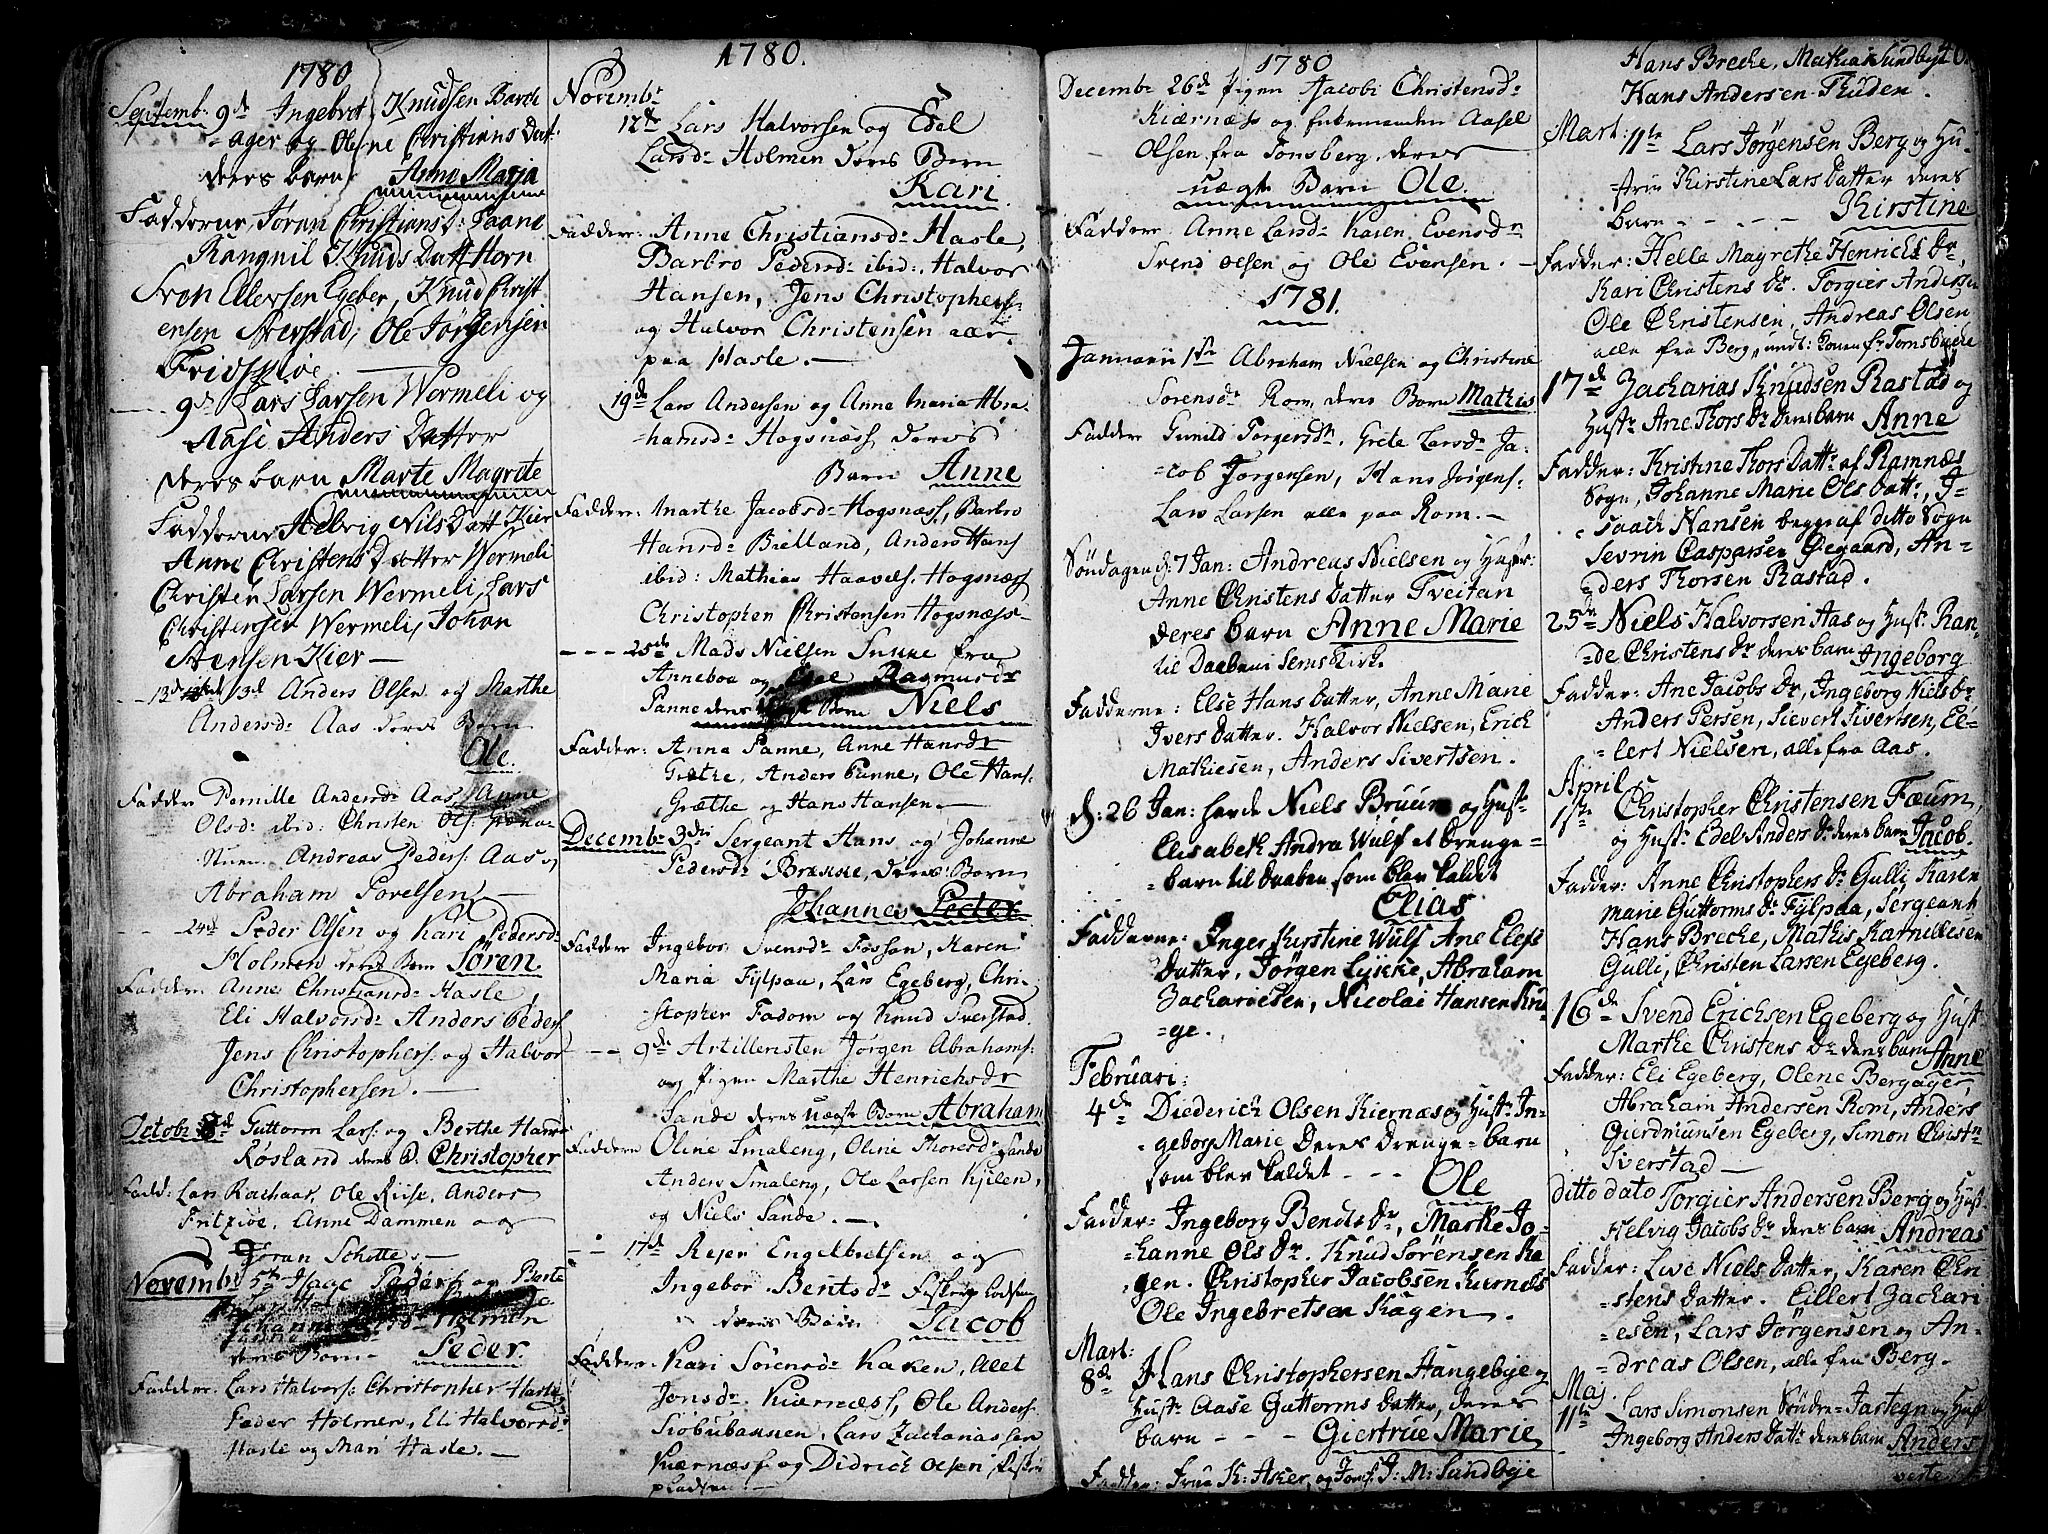 1780
Septemb: 9de Ingebret Knudsen Barch
ager og Olene Christians Dat:
deres barn Anne Maria
Fadderne Joran Christiansd: Paane
Rangnil Knuds Datt Horn
Sven Ellefsen Egeber, Knud Christ
ensen Sverstad, Ole Jørgensen
Fridsøe
9d Lars Larsen Wermeli og
Aase Anders Datter
deres barn Marte Magrete
Fadderne Helvig Nils Datt Kier
Anne Christens Datter Wermeli
Christen Larsen Wermeli, Lars
Christensen Wermeli, Johan
Svensen Kier
13d Anders Olsen og Marthe
Andersd: Aas deres Barn
Ole
Fadder Pernille Andersd: Aas, Anne
Olsd: ibid: Christen Ols:
Andreas Peders: Aas,
Abraham Sorelsen
24d Peder Olsen og Kari Pedersd:
Holmen deres Barn Sören
Faddere Anne Christiansd: Hasle,
Eli Halvorsd: Anders Peders:
Jens Christophers: og Halvor
Christophersen.
Octobr 8d Guttorm Lars: og Berthe Hans
Røsland deres B. Christopher
Fadd: Lars Rachaas, Ole Riise, Anders
Fritzöe, Anne Dammen og
Joran Schotte
Novembr 5te Isaac Peders og Berte
Johanne Holmen
deres Barn Peder.
Fadder: Lars Halvors: Christopher Hasle
Peder Holmen, Eli Halvorsd:
Hasle og Mari Hasle.
1780.
Novembr
12te Lars Halvorsen og Edel
Larsd: Holmen deres Barn
Kari
Fadder: Anne Christiansd: Hasle,
Barbro Pedersd: ibid: Halvor
Hansen, Jens Christophers:
og Halvor Christensen
paa Hasle.
19de Lars Andersen og Anne Maria Abra
hamsd: Hogsnæss deres
Barn Anne
Fadder: Marthe Jacobsd: Hogsnæss, Barbro
Hansd: Bielland, Anders Hans
ibid: Mathias Haavels: Hogsnæss
Christopher Christensen Hogsnæss
25de Mads Nielsen Sunne fra
Anneboa og Edel Rasmusd:
Panne deres Barn Niels
Fadder: Anna Panne, Anne Hansdr
Grethe, Anders Panne, Ole Hans.
Græthe og Hans Hansen.
Decembr 3die Sergeant Hans og Johanne
Pedersd: Brekke, deres Barn
Johannes Peder
Fadder Ingebor Svensd: Fossan, Karen
Maria Fylpaa, Lars Egeberg, Chri
stopher Fadom og Knud Sverstad.
9de Artilleristen Jørgen Abrahams:
og Pigen Marthe Henrichsdr
Sande deres uægte Barn Abraham
Faddere Oline Smaleng, Oline Thoresdr Sande
Anders Smaleng, Ole Larsen Kjilen,
og Niels Sande.
17de Rejer Engelbretsen og
Ingebor Bentsdr
deres Barn Jacob
Faddere Kari Sörensd: Kaken, Alet
Jonsdr Kiærnæss, Ole Anders:
Siöbubakken, Lars Zachariassen
Kiærnæss og Didrich Olsen
1780
Decembr 26de Pigen Jacobi Christensd:
Kiærnæs og Aasel
Olsen fra Tonsberg, deres
uægte Barn Ole.
Faddere Anne Larsd: Karen Evensdr
Svend Olsen og Ole Evensen.
1781.
Januarii 1ste Abraham Nielsen og Christine
Sorensdr Rom, deres Barn Mathis
Fadder Gunild Torgersdr, Grete Larsdr Ja
cob Jorgensen, Hans Jørgens:
Lars Larsen alle paa Rom.
Søndagen d: 7 Jan: Andreas Nielsen og Hustr:
Anne Christens Datter Tveitan
deres barn Anne Marie
til Daaben i Sems Kirk.
Fadderne: Else Hans Datter, Anne Marie
Ivers Datter. Halvor Nielsen, Erich
Mathiesen, Anders Sivertsen.
d: 26 Jan: havde Niels Bruun og Hust
Elisabeth Andra Wulf et Drenge
barn til Daaben som blev kaldet
Elias
Fadderne: Inger Kirstine Wulf Ane Elefs
Datter, Jørgen Lykke, Abraham
Zachariesen, Nicolai Hansen Krü
ge.
Februari:
4de Diederich Olsen Kiernæs og Hustr In
geborg Marie deres Drenge-barn
som blev kaldet - - - Ole
Fadder: Ingeborg Bends Dr, Marthe Jo
hanne Ols Dr. Knud Sörensen Ha
gen. Christopher Jacobsen Kiernes
Ole Ingebretsen Hagen.
Mart:
8de Hans Christophersen Haugebye og
Hustr Aase Guttorms Datter, deres
barn - - - Giertrue Marie
Fadder: Frue K: Asker, og Jomf: J: M: Sundbye
Hans Breche, Mathias Sundbye
Hans Andersen Thuden.
Mart: 11te Lars Jørgensen Berg og Hu
strue Kirstine Lars Datter deres
barn - - - - Kirstine
Fadder: Helle Magrethe Henrichs Dr,
Kari Christens Dr. Torgier Andersen
Ole Christensen, Andreas Olsen
alle fra Berg, undt: Konen fr Tomsbache
17de Zacharias Knudsen Rastad og
Hustr Ane Thors Dr deres barn Anne
Fadder: Kristine Thors Dattr af Ramnæs
Sogn, Johanne Marie Ols Dattr, I
saach Hansen begge af ditto Sogn
Sevrin Caspersen Øegaard, An
ders Thorsen Rastad.
25de Niels Halvorsen Aas og Hustr Ran
de Christens Dr deres barn Ingeborg
Fadder: Ane Jacobs Dr, Ingeborg Niels Dr
Anders Persen, Sievert Sivertsen, El
lert Nielsen, alle fra Aas.
April
1ste Christopher Christensen Fæum,
og Hustr Edel Anders Dr deres barn Jacob.
Fadder: Anne Christophers Dr Gulli, Karen
Marie Guttorms Dr Fylpaa, Sergeant
Hans Breche, Mathis Kamillesen
Gulli, Christen Larsen Egeberg.
16de Svend Erichsen Egeberg og Hust
Marthe Christens Dr deres barn Anne
Fadder: Eli Egeberg, Olene Bergager,
Abraham Andersen Rom, Anders
Gierdmundsen Egeberg, Simon Christn
Sverstad
ditto dato Torgier Andersen Berg og Hust
Helvig Jacobs Dr deres barn Andreas
Fadder: Live Niels Datter, Karen Chri
stens Datter. Eillert Zachari
esen, Lars Jørgensen og An
dreas Olsen, alle fra Berg.
Maj.
11te Lars Simonsen Søndre-Jartegn og Hust
Ingeborg Anders Dattr deres barn Anders
verte